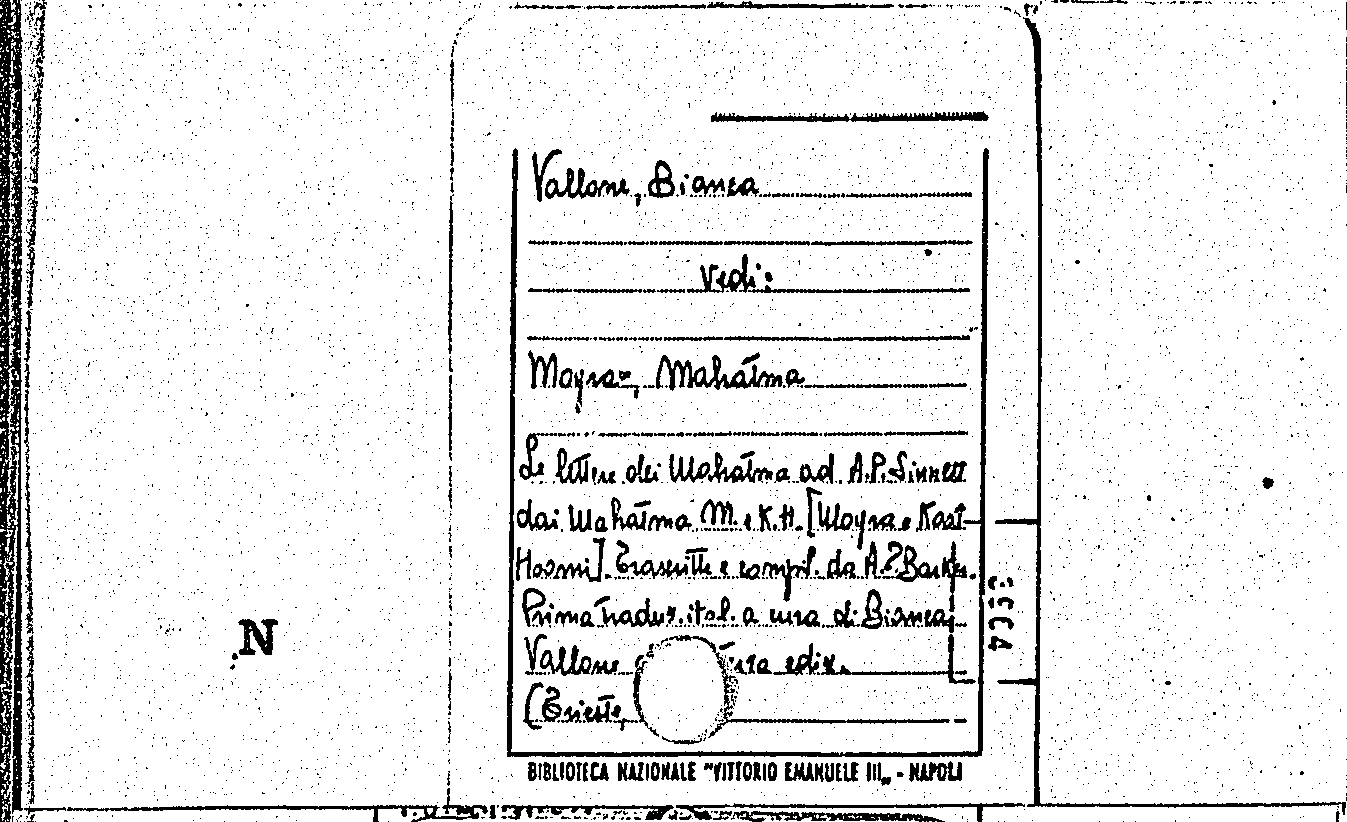 Vallone, Bianca
Vedi:
Moyra, Mahātma
Le lettere dei Mahātma ad A.P. Sinnett
dai Mahātma M. e K.H. [Moyra e Koot
Hoomi]. Trascritte e compil. da A.T. Barker.
Prima traduz. ital. a cura di Bianca
Vallone edix.
(Trieste,
N
BIBLIOTECA NAZIONALE "VITTORIO EMANUELE III„ - NAPOLI